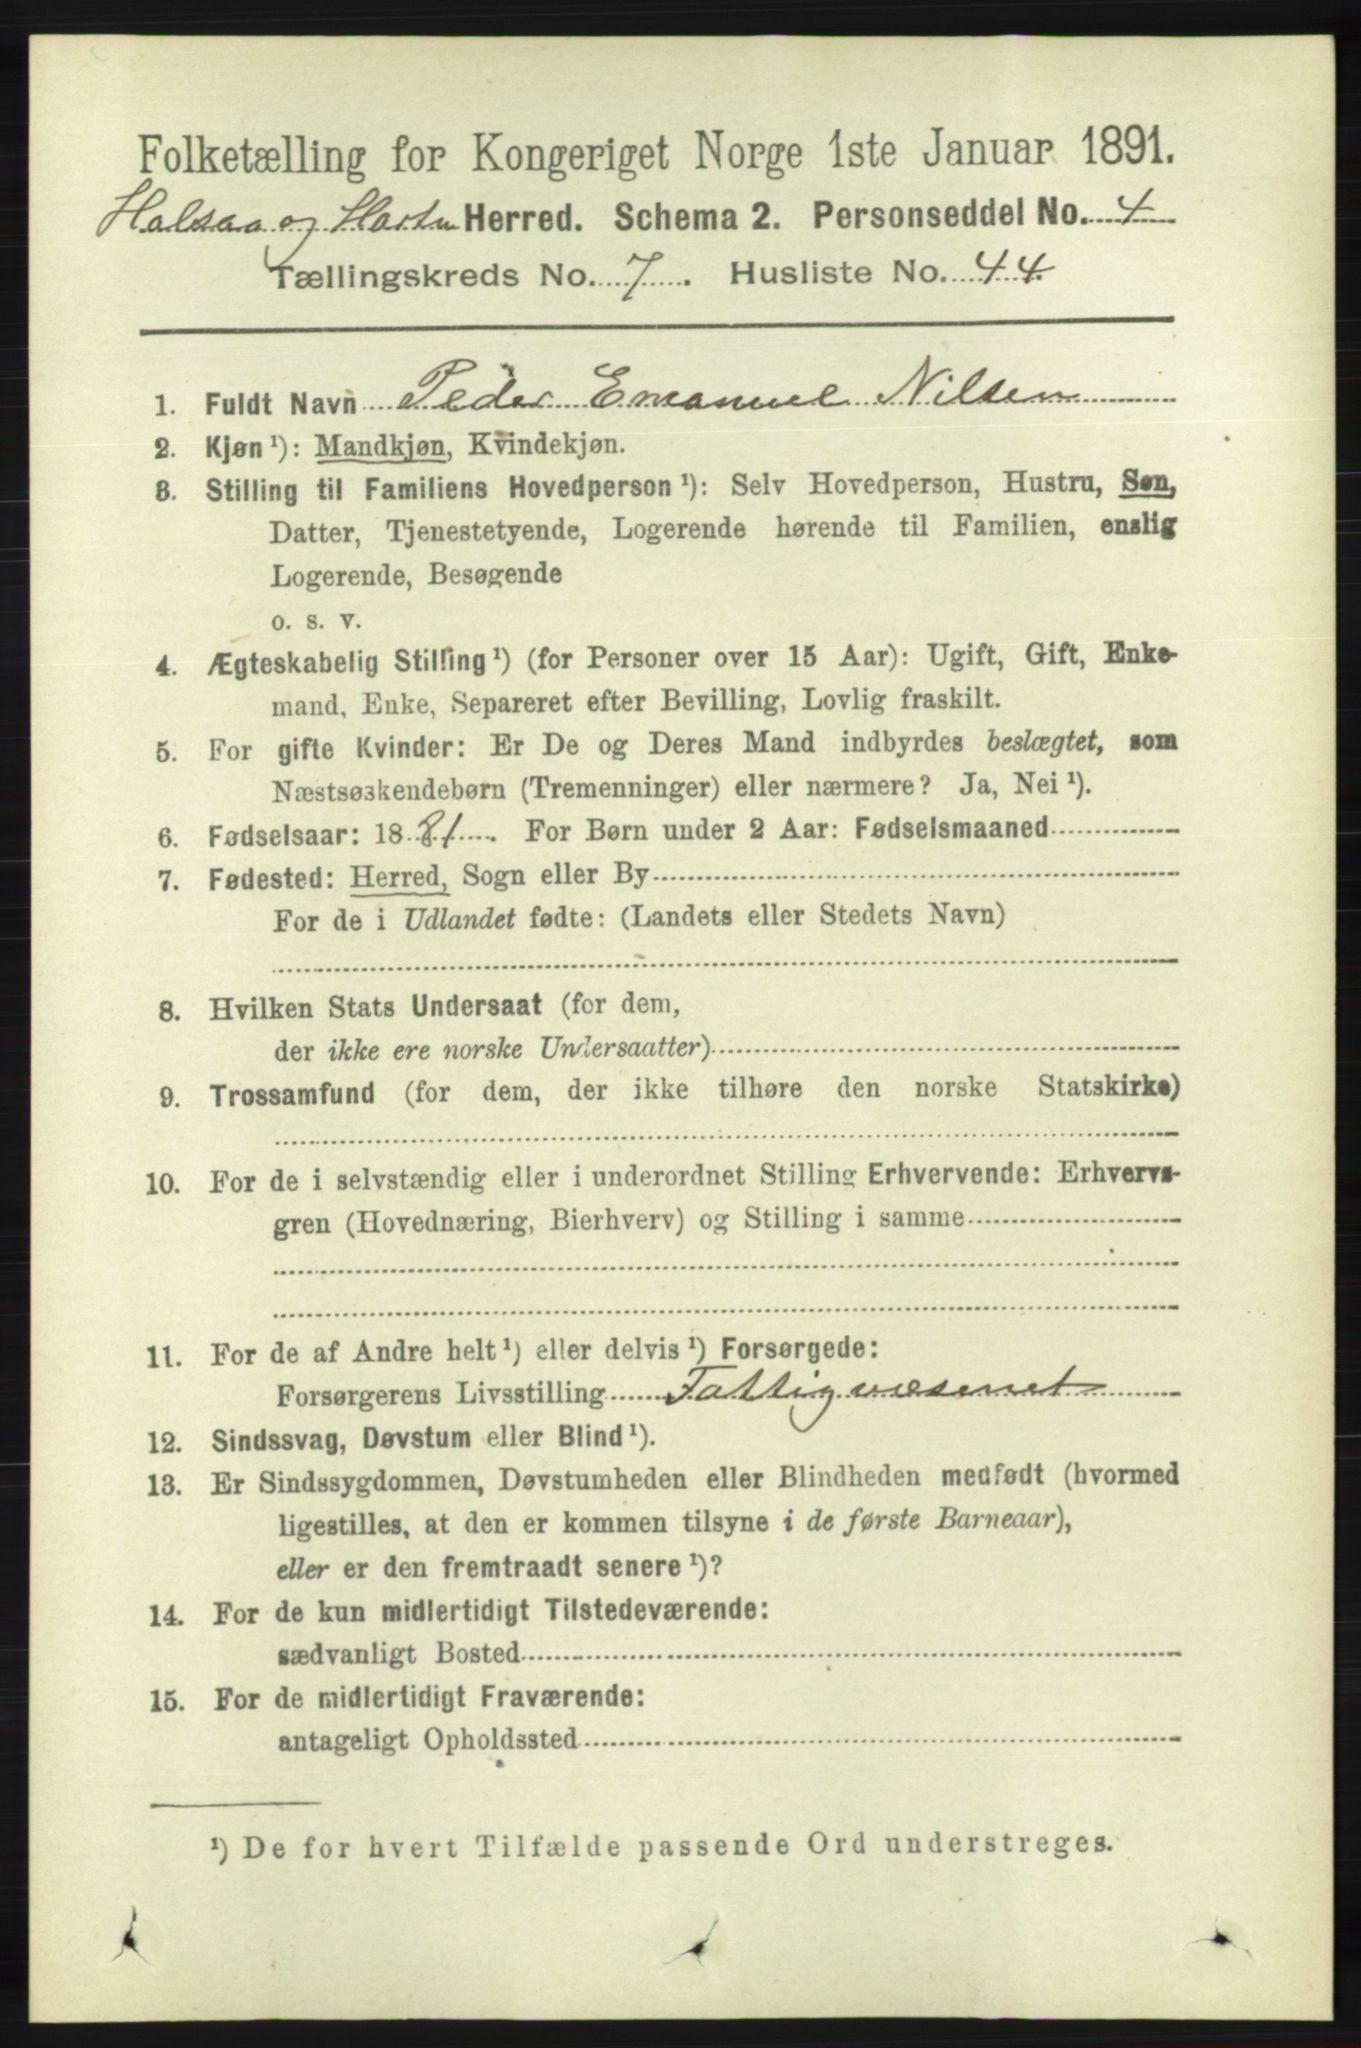 Folketælling for Kongeriget Norge 1ste Januar 1891.
Halsaa og Hartm Herred. Schema 2. Personseddel No. 4
Tællingskreds No. 7. Husliste No. 44
1. Fuldt Navn Peder Emanuel Nilsen
2. Kjøn ¹): Mandkjøn, Kvindekjøn.
3. Stilling til Familiens Hovedperson ¹): Selv Hovedperson, Hustru, Søn,
Datter, Tjenestetyende, Logerende hørende til Familien, enslig
Logerende, Besøgende
o. s. v.
4. Ægteskabelig Stilling ¹) (for Personer over 15 Aar): Ugift, Gift, Enke-
mand, Enke, Separeret efter Bevilling, Lovlig fraskilt.
5. For gifte Kvinder: Er De og Deres Mand indbyrdes beslægtet, som
Næstsøskendebørn (Tremenninger) eller nærmere? Ja, Nei ¹).
6. Fødselsaar: 1881. For Børn under 2 Aar: Fødselsmaaned
7. Fødested: Herred, Sogn eller By
For de i Udlandet fødte: (Landets eller Stedets Navn)
8. Hvilken Stats Undersaat (for dem,
der ikke ere norske Undersaatter)
9. Trossamfund (for dem, der ikke tilhøre den norske Statskirke)
10. For de i selvstændig eller i underordnet Stilling Erhvervende: Erhvervs-
gren (Hovednæring, Bierhverv) og Stilling i samme
11. For de af Andre helt ¹) eller delvis ¹) Forsørgede:
Forsørgerens Livsstilling Fattigvæsenet
12. Sindssvag, Døvstum eller Blind ¹).
13. Er Sindssygdommen, Døvstumheden eller Blindheden medfødt (hvormed
ligestilles, at den er kommen tilsyne i de første Barneaar),
eller er den fremtraadt senere ¹)?
14. For de kun midlertidigt Tilstedeværende:
sædvanligt Bosted
15. For de midlertidigt Fraværende:
antageligt Opholdssted
¹) De for hvert Tilfælde passende Ord understreges.